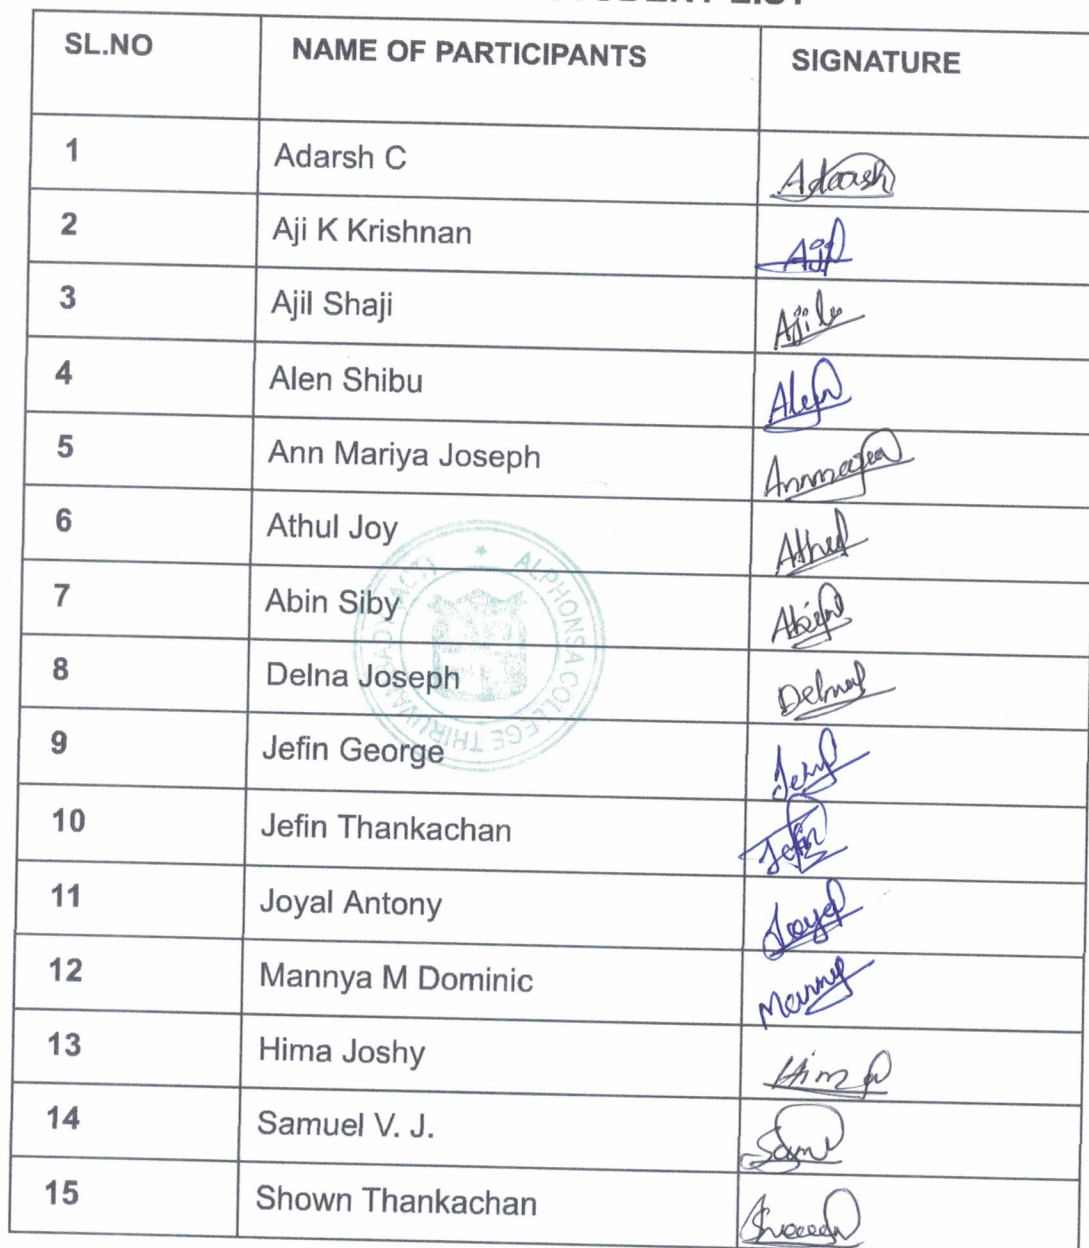 STUDENT LIST
SL.NO NAME OF PARTICIPANTS SIGNATURE
1 Adarsh C Adarsh
2 Aji K Krishnan Aji
3 Ajil Shaji Ajil
4 Alen Shibu Alen
5 Ann Mariya Joseph
6 Athul Joy Athul
7 Abin Siby Abin
8 Delna Joseph Delna
9 Jefin George
10 Jefin Thankachan Jefin
11 Joyal Antony Joyal
12 Mannya M Dominic
13 Hima Joshy Hima
14 Samuel V. J.
15 Shown Thankachan
ALPHONSA COLLEGE THIRUVAMBADY (ACT)